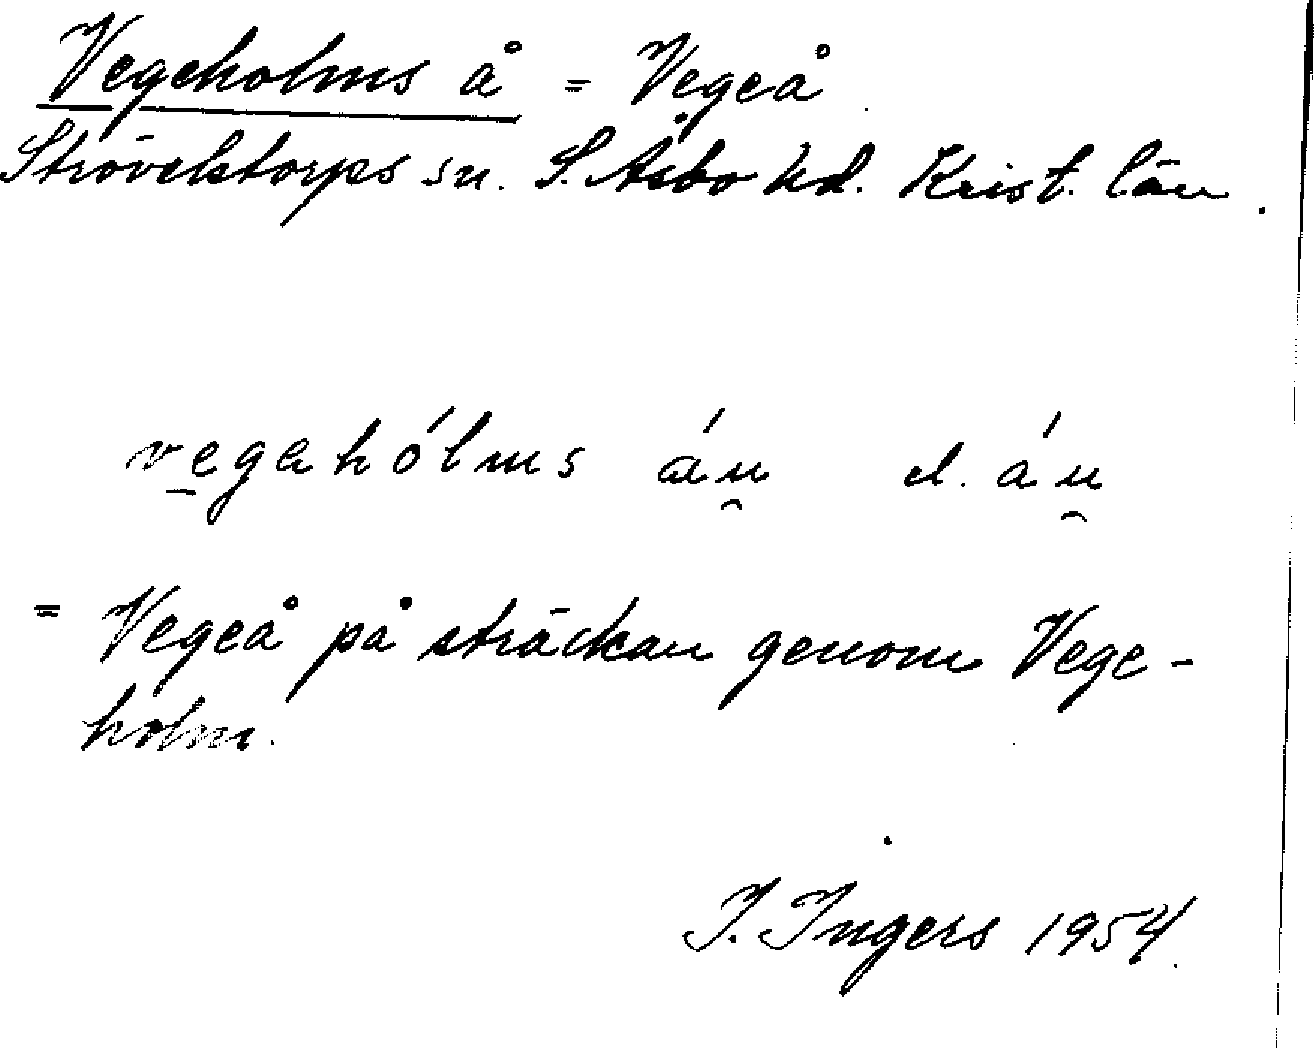 Vegeholms å = Vegeå
Strövelstorps sn. S. Åsbo hd. Krist. län.
vegahólms án el. án
= Vegeå på sträckan genom Vege-
holm.
I. Ingers 1954.